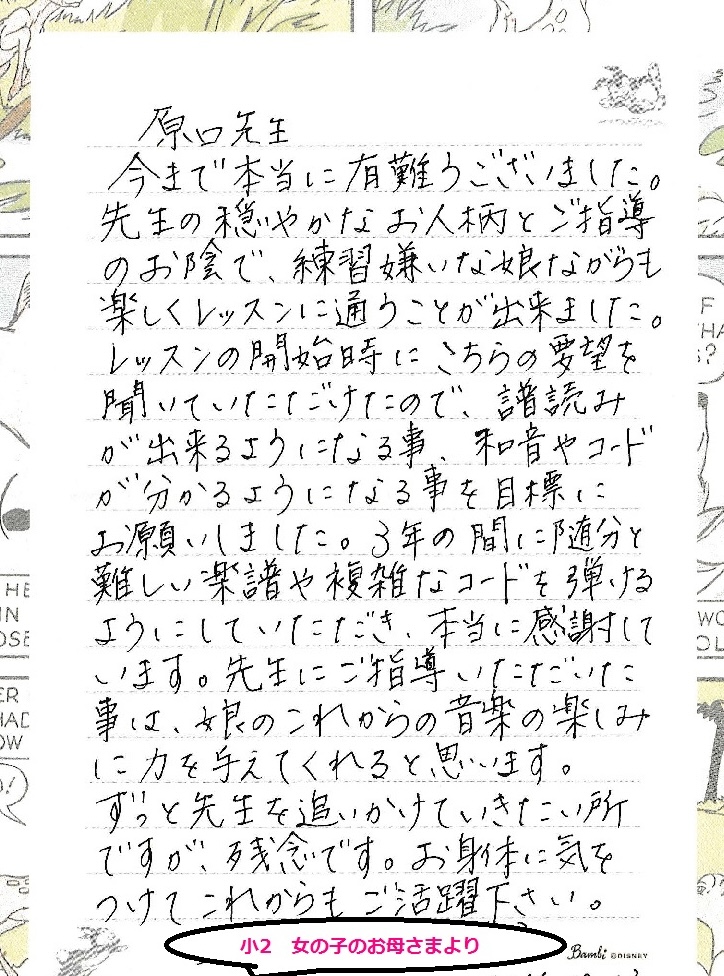 原口先生
今まで本当に有難うございました。
先生の穏やかなお人柄とご指導
のお陰で、練習嫌いな娘ながらも
楽しくレッスンに通うことが出来ました。
レッスンの開始時にこちらの要望を
聞いていただけたので、譜読み
が出来るようになる事、和音やコード
が分かるようになる事を目標に
お願いしました。3年の間に随分と
難しい楽譜や複雑なコードを弾ける
ようにしていただき、本当に感謝して
います。先生にご指導いただいた
事は、娘のこれからの音楽の楽しみ
に力を与えてくれると思います。
ずっと先生を追いかけていきたい所
ですが、残念です。お身体に気を
つけてこれからもご活躍下さい。
小2 女の子のお母さまより
Bambi ©DISNEY